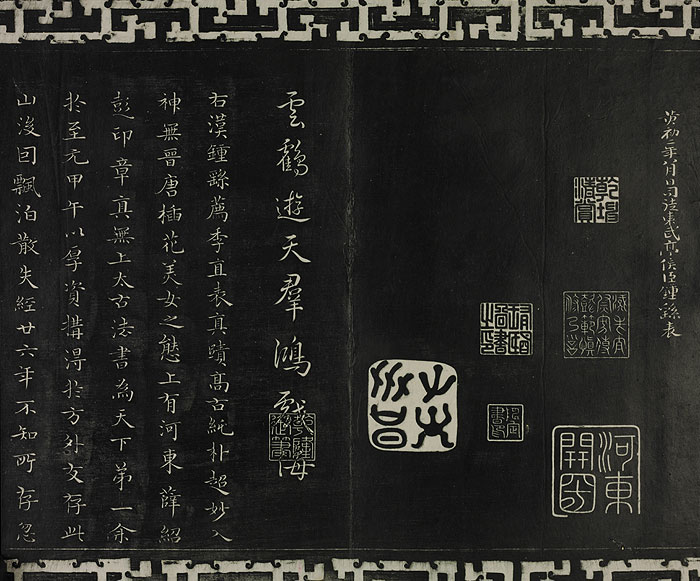 黃初二年八月日司徒東武亭侯臣鍾繇表
河東
開國
雲鶴遊天羣鴻戲海
乾隆
宸翰
右漢鍾繇薦季直表真蹟高古純朴超妙入
神無晉唐插花美女之態上有河東薛紹
彭印章真無上太古法書為天下第一余
於至元甲午以厚資購得於方外友存此
山後回飄泊散失經廿六年不知所存忽